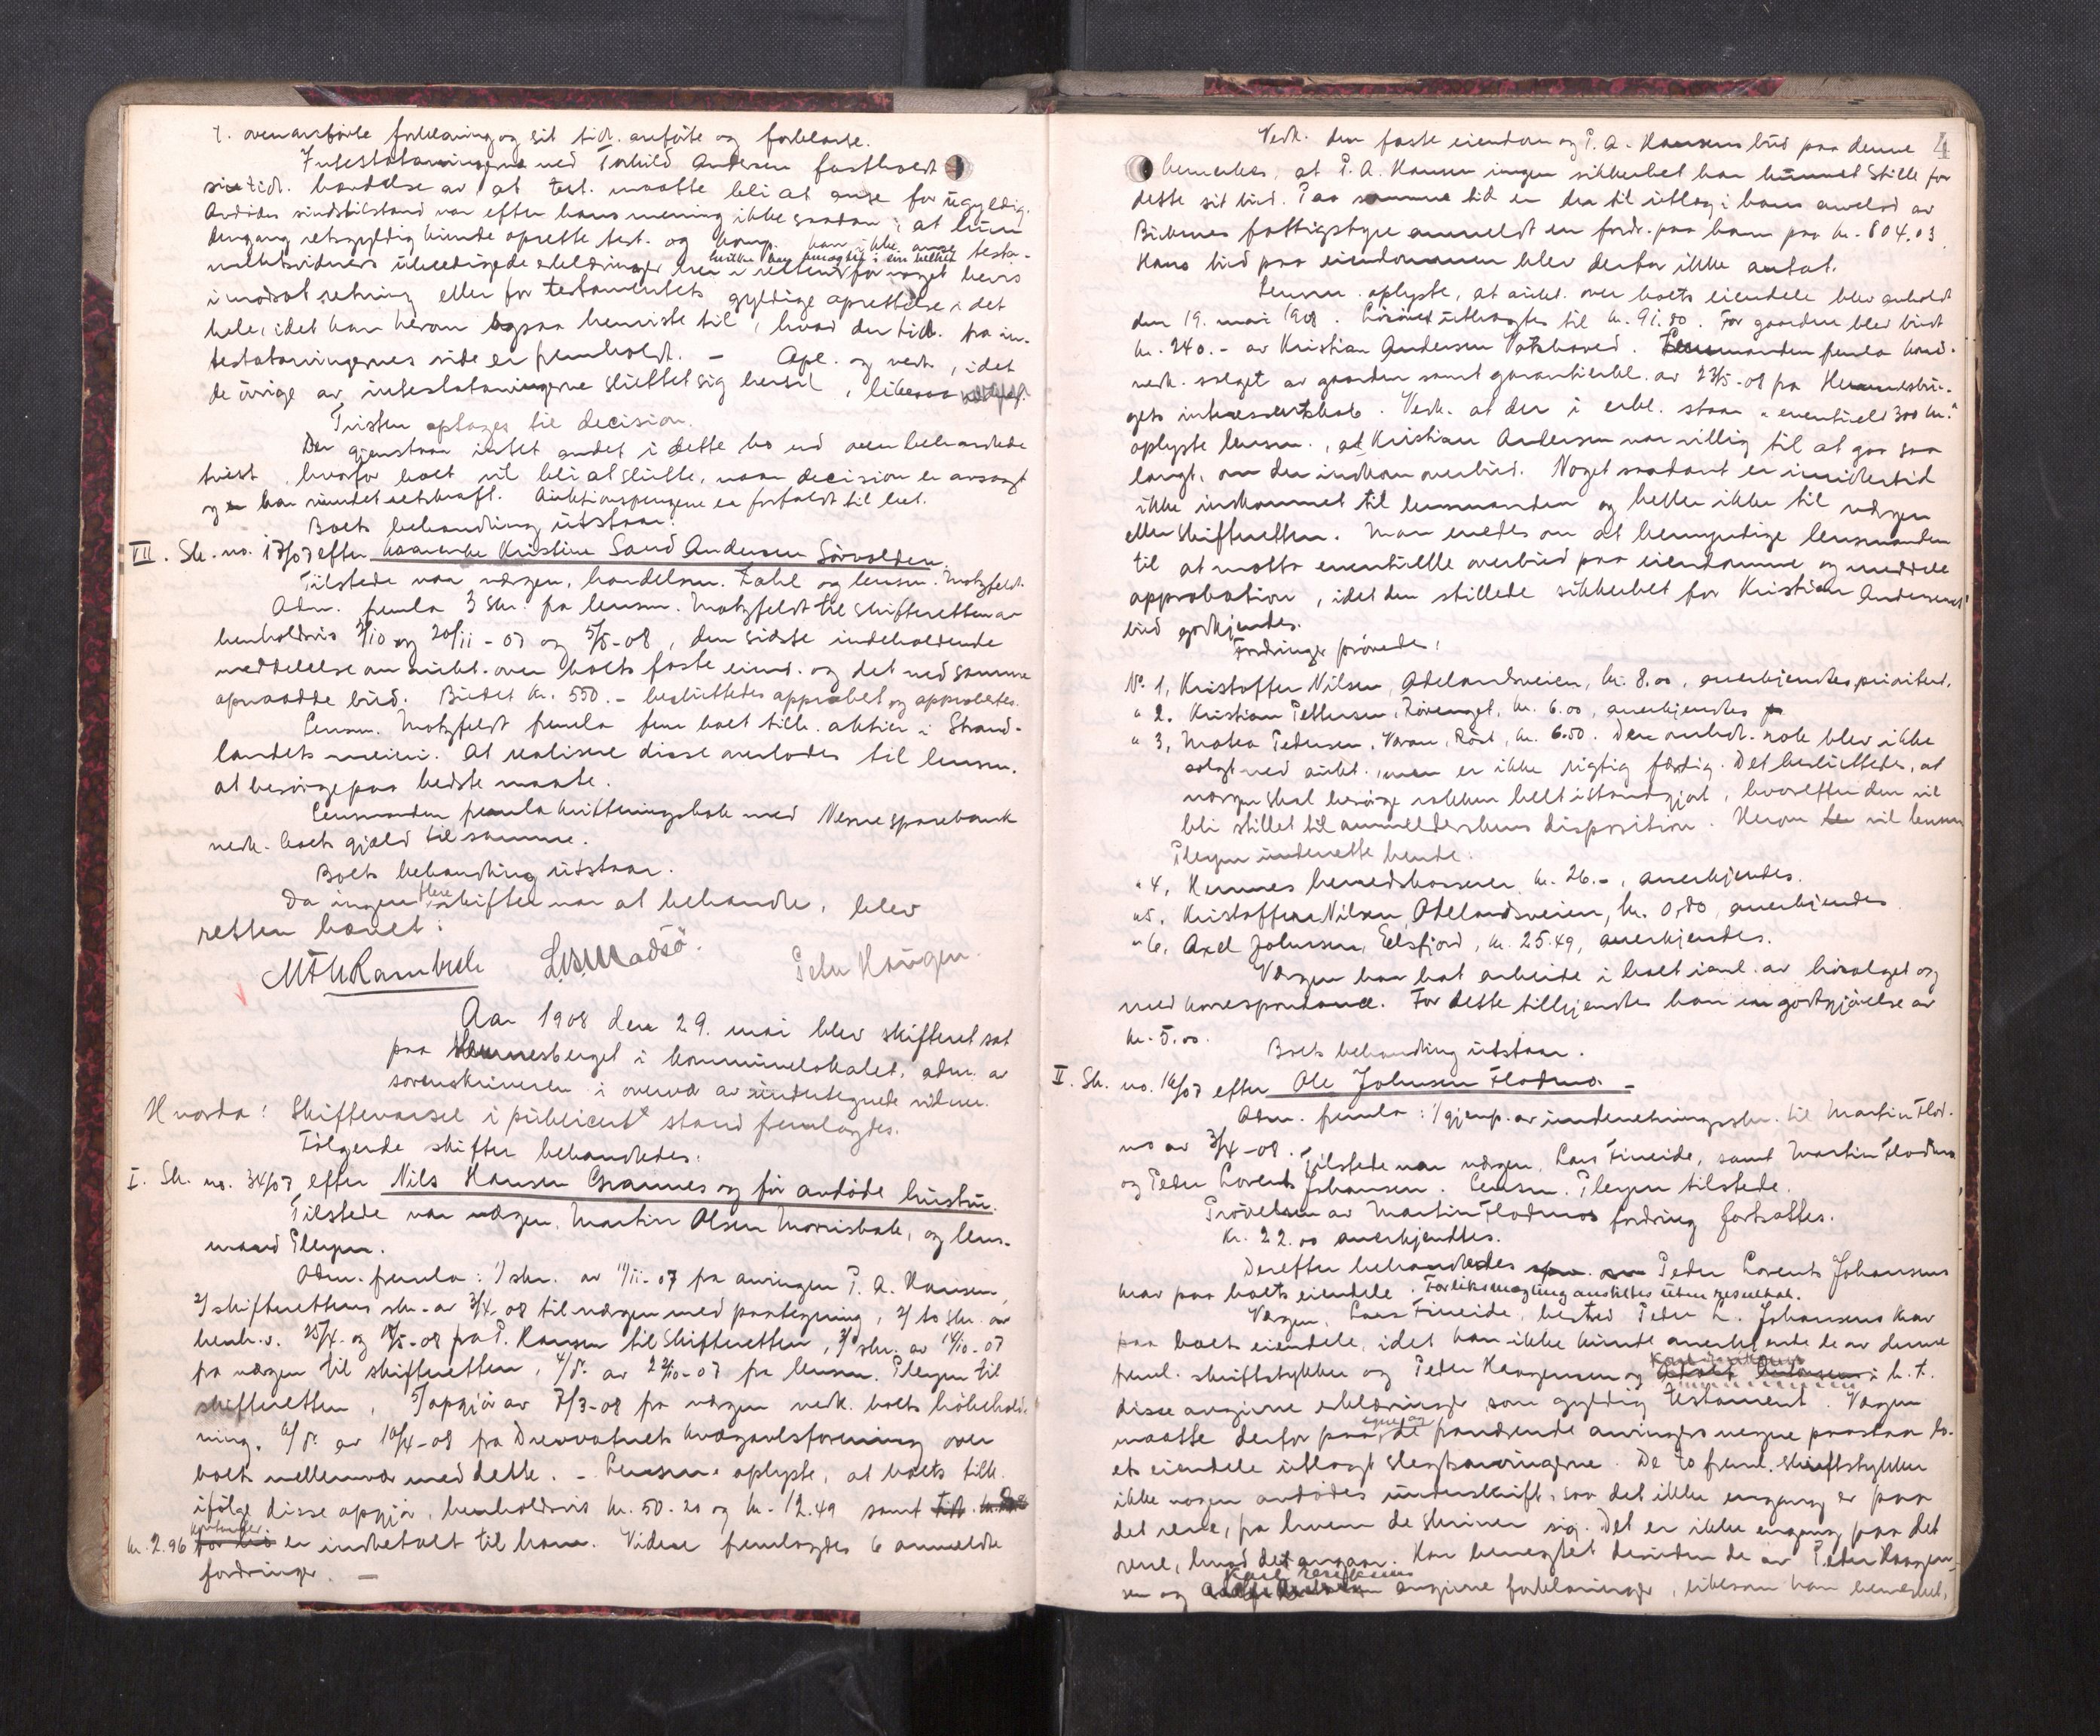 t. ovenanførte forklaring og sit tidl. anførte og forklarte.
Intestatarvingerne ved Torkild Andersen fastholdt
sin tidl. benektelse av at test. maatte bli at anse for ugyldig.
Avdødes sindstilstand var efter hans mening ikke saadan, at hun
dengang retsgyldig kunde oprette test. og komp. kan ikke anse testa-
mentsvidners ubeedigede erklæringer her i retten for noget bevis
i motsat retning eller for testamentets gyldige oprettelse i det
hele, idet han herom ogsaa henviste til, hvad der tidl. fra in-
testatarvingernes side er fremholdt. — Apl. og vedk., idet
de øvrige av intestatarvingerne sluttet sig hertil, likesaa
Tvisten optages til decision.
Der gjenstaar intet andet i dette bo end ovenbehandlede
tvist, hvorfor boet vil bli at slutte, naar decision er avsagt
og har vundet retskraft. Auktionspengene er forfaldt til
Boets behandling utstaar.
VII. Sk. no. 17/07 efter kaarenke Kristine Sand Andersen Sørvolden.
Tilstede var værgen, handelsm. Dahl og lensm. Motzfeldt.
Adm. fremla 3 skr. fra lensm. Motzfeldt til skifteretten av
henholdsvis 3/10 og 20/11 - 07 og 5/5 - 08, den sidste indeholdende
meddelelse om aukt. over boets faste eiend. og det ved samme
opnaadde bud. Budet kr. 550.- besluttedes approbert og approbertes.
Lensm. Motzfeldt fremla fem boet tilh. aktier i Strand-
landets meieri. At realisere disse overlodes til lensm.
at besørge paa bedste maate.
Lensmanden fremla kvitteringsbok med Nesne sparebank
vedk. boets gjæld til samme.
Boets behandling utstaar.
Da ingen flere skifter var at behandle, blev
retten hævet:
Peder Haugen.
Aar 1908 den 29. mai blev skifteret sat
paa Hemnesberget i kommunelokalet, adm. av
sorenskriveren i overvær av undertegnede vidner.
Hvorda: Skiftevarsel i publicert stand fremlagdes.
Følgende skifter behandledes:
I. Sk. no. 34/07 efter Nils Hansen Grannes og før avdøde hustru.
Tilstede var værgen, Martin Olsen Mornisbak, og lens-
mand Pleym.
Adm. fremla: 1/ skr. av 11/11 - 07 fra arvingen P. A. Hansen,
2/ skifterettens skr. av 3/4 - 08 til værgen med paategning, 2/ to skr. av
henh.v. 25/4. og 18/5 - 08 fra P. Hansen til skifteretten, 3/ skr. av 14/10 - 07
fra værgen til skifteretten, 4/ do. av 22/10 - 07 fra lensm. Pleym til
skifteretten, 5/ opgjør av 7/3 - 08 fra værgen vedk. boets beholdning
ning, 6/ do. av 10/4 - 08 fra Drevvatnets kvægavlsforening over
boets mellemvær med dette. - Lensm. oplyste, at boets tilh.
ifølge disse opgjør, henholdsvis kr. 50.20 og kr. 12.49 samt
kr. 2.96 kontanter er indbetalt til ham. Videre fremlagdes 6 anmeldte
fordringer. —
4
Vedk. den faste eiendom og P. A. Hansens bud paa denne
bemerkes, at P. A. Hansen ingen sikkerhet har kunnet stille for
dette sit bud. Paa samme tid er der til utlæg i hans arvelod av
fattigstyre anmeldt en fordr. paa ham paa kr. 604.03.
Hans bud paa eiendommen blev derfor ikke antat.
Lensm. oplyste, at aukt. over boets eiendele blev avholdt
den 19. mai 1908. Løsøret utbragtes til kr. 91.80. For gaarden blev budt
kr. 240.- av Kristian Andersen Vatshaved. Lensmanden fremla kond.
vedk. salget av gaarden samt garantierkl. av 23/5 - 08 fra Hemnesber-
gets interessentskab. Vedk. at der i erkl. staar "eventuelt 300 kr."
oplyste lensm., at Kristian Andersen var villig til at gaa saa
langt, om der indkom overbud. Noget saadant er imidlertid
ikke indkommet til lensmanden og heller ikke til værgen
eller skifteretten. Man enedes om at bemyndige lensmanden
til at motta eventuelle overbud paa eiendommen og meddele
approbation, idet den stillede sikkerhet for Kristian Andersens
bud godkjendes.
Fordringer prøvedes:
No. 1, Kristoffer Nilsen, Ødelandsveien, kr. 8.00, anerkjendtes, prioritert.
" 2. Kristian Pettersen, Røvenget, kr. 6.00, anerkjendtes
" 3, Matea Pedersen, Varan, Røst, kr. 6.50. Den omhdl. rok blev ikke
solgt ved aukt., men er ikke rigtig færdig. Det besluttedes, at
værgen skal besørge rokken helt istandgjort, hvorefter den vil
bli stillet til anmelderskens disposition. Herom vil lensm.
Pleym underrette hende.
" 4, Hemnes herredskasserer kr. 26.-, anerkjendes.
" 5. Kristoffer Nilsen, Ødelandsveien, kr. 0,80, anerkjendes
" 6, Axel Johnsen, Elsfjord, kr. 25.49, anerkjendes.
Værgen har hat arbeide i boet i anl. av løssalget og
med korrespondance. For dette tilkjendtes han en godtgjørelse av
kr. 5.00.
Boets behandling utstaar.
II. Sk. no. 16/07 efter Ole Johnsen Flodmo. -
Adm. fremla: 1/ gjenp. av underretningsskr. til Martin Flod-
mo av 3/4 - 08. Tilstede var værgen, Lars Fineide, samt Martin Flodmo
og Peder Lorents Johansen. Lensm. Pleym tilstede.
Prøvelsen av Martin Flodmos fordring fortsattes.
Kr. 22.00 anerkjendtes.
Derefter behandledes Peder Lorents Johansens
krav paa boets eiendele. Forliksmægling anstiltes uten resultat.
Værgen, Lars Fineide, bestred Peder L. Johansens krav
paa boets eiendele, idet han ikke kunde anerkjende de av denne
freml. skriftstykker og Peder Haagensen og i h. t.
disse avgivne erklæringer som gyldig testament. Værgen
maatte derfor paa egne og de fraværende arvingers vegne paastaa bo-
ets eiendele utlagt slegtsarvingerne. De to freml. skriftstykker
ikke nogen avdødes underskrift, saa det ikke engang er paa
det rene, fra hvem de skriver sig. Det er ikke engang paa det
rene, hvad det angaar. Han benegtet desuden de av Peder Haagen-
sen og avgivne forklaringer, likesom han benegtet,